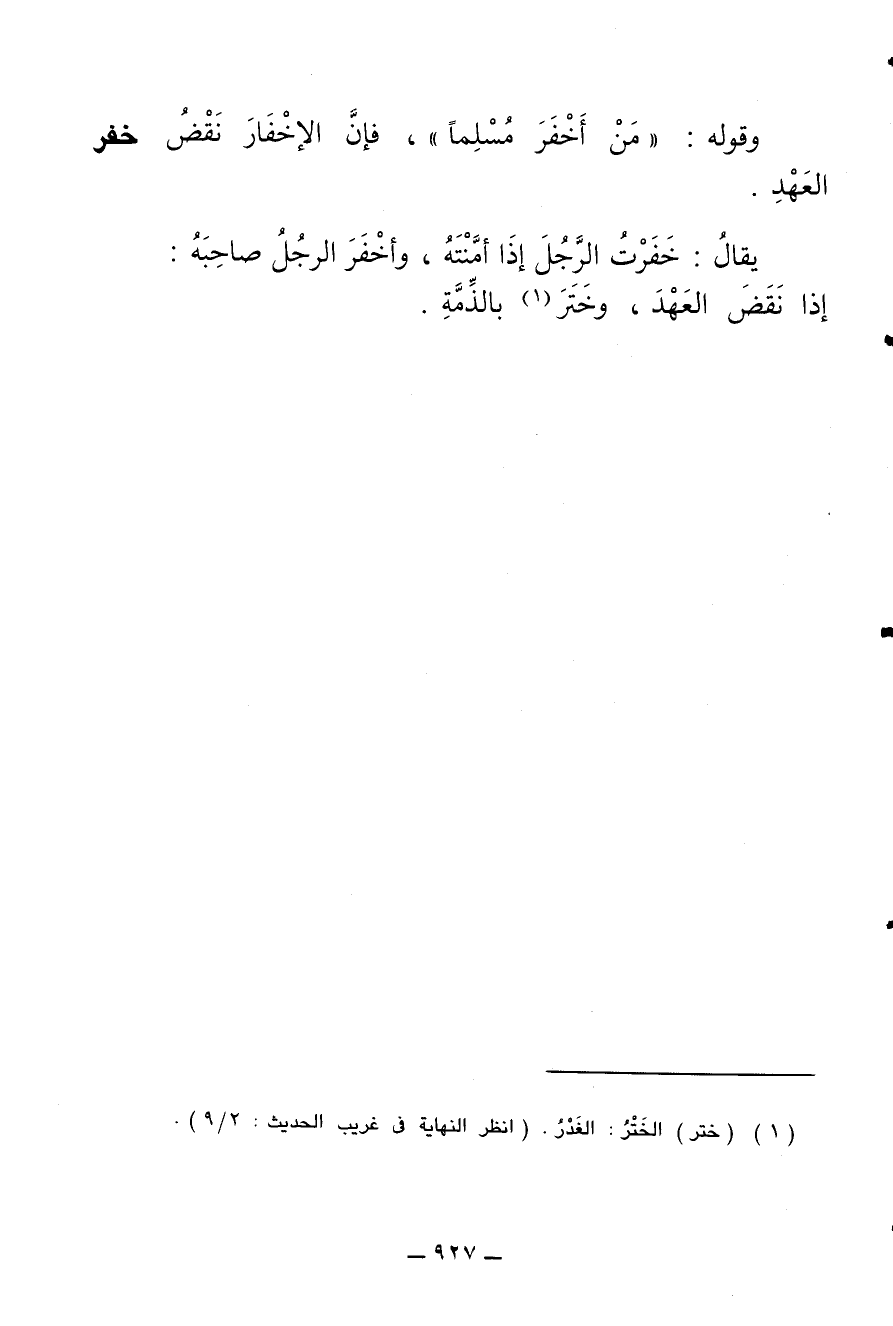 وقوله : « مَنْ أَخْفَرَ مُسْلِماً » ، فإنَّ الإخْفَارَ نَقْضُ خفر
العَهْدِ .
يقالُ : خَفَرْتُ الرَّجُلَ إذَا أمَّنْتَهُ ، وأخْفَرَ الرجُلُ صاحِبَهُ :
إذا نَقَضَ العَهْدَ ، وخَتَرَ (١) بالذِّمَّةِ .
( ١ ) ( ختر ) الخَتْرُ : الغَدْرُ . ( انظر النهاية فى غريب الحديث : ٩/٢ ) .
— ٩٢٧ —